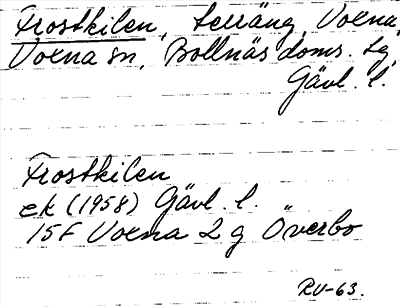 Frostkilen, terräng, Voxna,
Voxna sn, Bollnäs doms. tg,
Gävl. l.
Frostkilen
ek (1958) Gävl. l.
15F Voxna 2 g Överbo
RV-63.